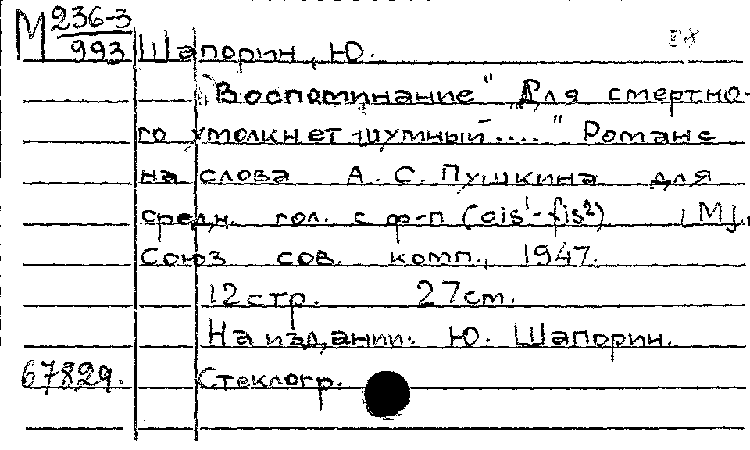 М 236-3
993 Шапорин, Ю.
"Воспоминание" „Для смертно-
го умолкнет шумный...." Романс
на слова А. С. Пушкина для
средн. гол. с ф-п (cis¹-fis²) [М],
Союз сов. комп., 1947.
12 стр. 27 см.
На издании: Ю. Шапорин.
67829. Стеклогр.